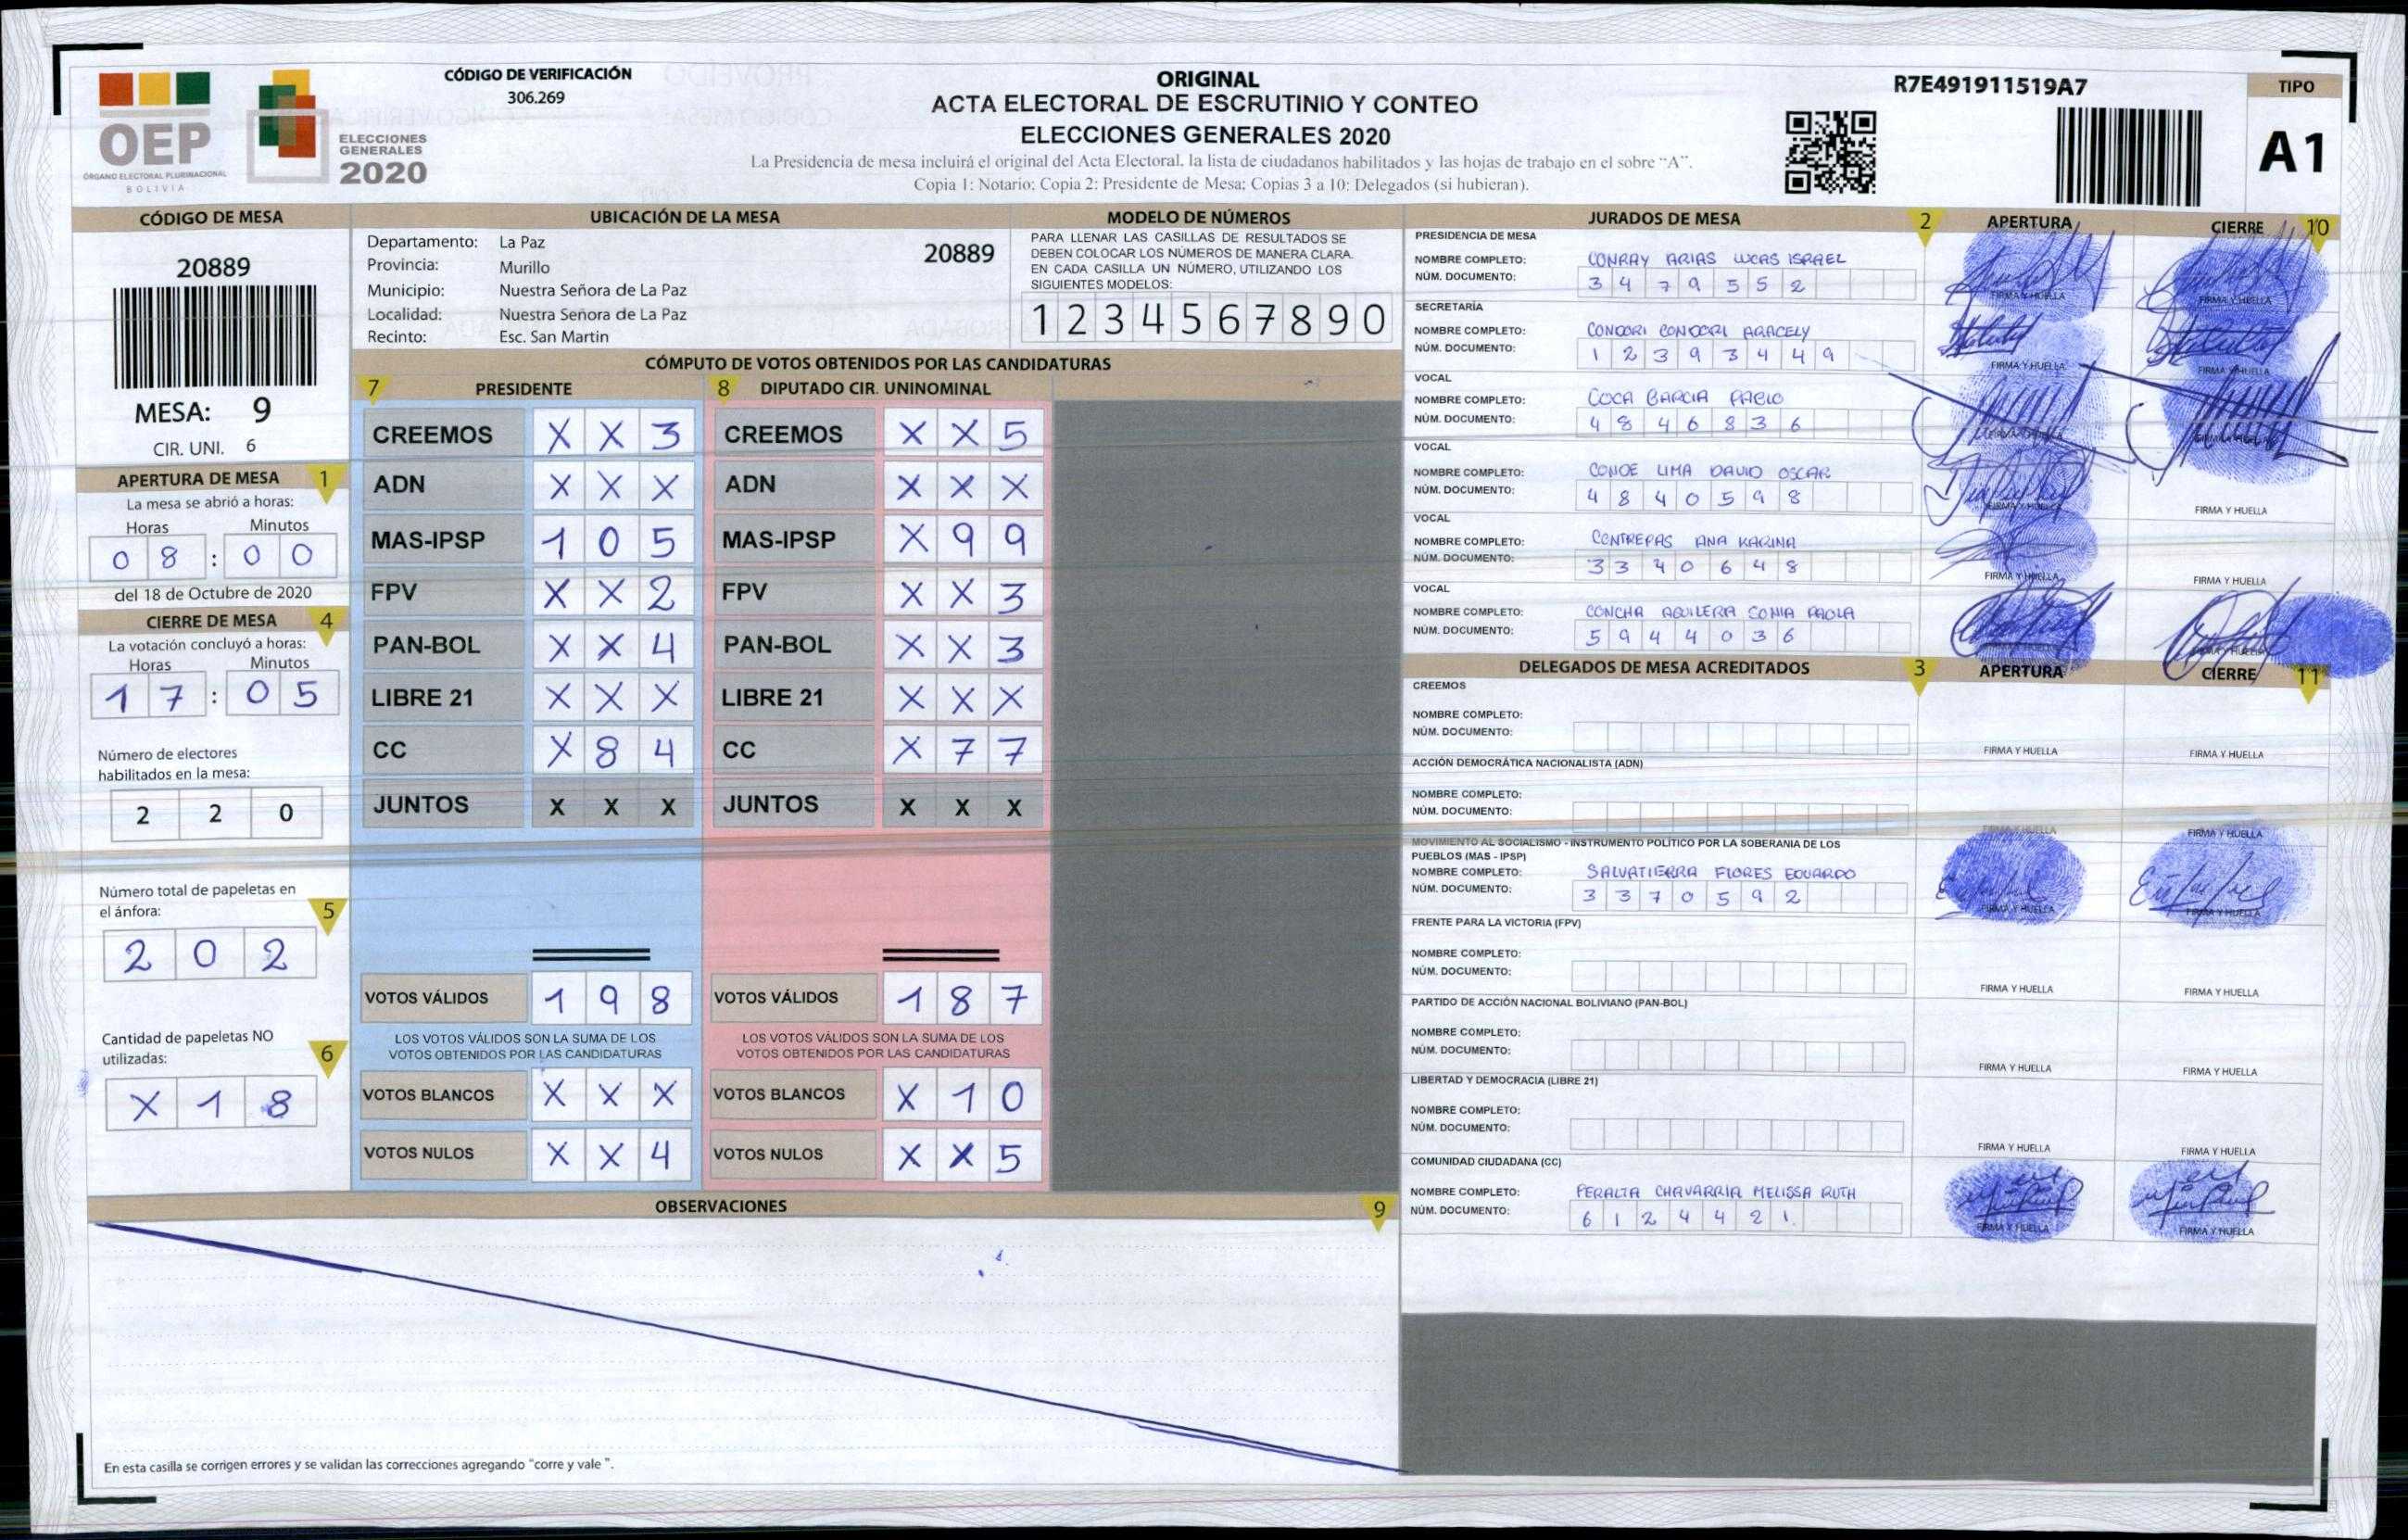 OEP
ÓRGANO ELECTORAL PLURINACIONAL
BOLIVIA
ELECCIONES
GENERALES
2020
CÓDIGO DE VERIFICACIÓN
306.269
ORIGINAL
ACTA ELECTORAL DE ESCRUTINIO Y CONTEO
ELECCIONES GENERALES 2020
La Presidencia de mesa incluirá el original del Acta Electoral, la lista de ciudadanos habilitados y las hojas de trabajo en el sobre “A”.
Copia 1: Notario; Copia 2: Presidente de Mesa; Copias 3 a 10: Delegados (si hubieran).
R7E491911519A7
TIPO
A1
CÓDIGO DE MESA
20889
MESA: 9
CIR. UNI. 6
APERTURA DE MESA 1
La mesa se abrió a horas:
Horas Minutos
0 8 : 0 0
del 18 de Octubre de 2020
CIERRE DE MESA 4
La votación concluyó a horas:
Horas Minutos
1 7 : 0 5
Número de electores
habilitados en la mesa:
2 2 0
Número total de papeletas en
el ánfora: 5
2 0 2
Cantidad de papeletas NO
utilizadas: 6
X 1 8
UBICACIÓN DE LA MESA
Departamento: La Paz
20889
Provincia: Murillo
Municipio: Nuestra Señora de La Paz
Localidad: Nuestra Señora de La Paz
Recinto: Esc. San Martin
MODELO DE NÚMEROS
PARA LLENAR LAS CASILLAS DE RESULTADOS SE
DEBEN COLOCAR LOS NÚMEROS DE MANERA CLARA.
EN CADA CASILLA UN NÚMERO, UTILIZANDO LOS
SIGUIENTES MODELOS:
1 2 3 4 5 6 7 8 9 0
CÓMPUTO DE VOTOS OBTENIDOS POR LAS CANDIDATURAS
7 PRESIDENTE 8 DIPUTADO CIR. UNINOMINAL
CREEMOS X X 3 CREEMOS X X 5
ADN X X X ADN X X X
MAS-IPSP 1 0 5 MAS-IPSP X 9 9
FPV X X 2 FPV X X 3
PAN-BOL X X 4 PAN-BOL X X 3
LIBRE 21 X X X LIBRE 21 X X X
CC X 8 4 CC X 7 7
JUNTOS X X X JUNTOS X X X
VOTOS VÁLIDOS 1 9 8 VOTOS VÁLIDOS 1 8 7
LOS VOTOS VÁLIDOS SON LA SUMA DE LOS LOS VOTOS VÁLIDOS SON LA SUMA DE LOS
VOTOS OBTENIDOS POR LAS CANDIDATURAS VOTOS OBTENIDOS POR LAS CANDIDATURAS
VOTOS BLANCOS X X X VOTOS BLANCOS X 1 0
VOTOS NULOS X X 4 VOTOS NULOS X X 5
OBSERVACIONES 9
En esta casilla se corrigen errores y se validan las correcciones agregando “corre y vale ”.
JURADOS DE MESA 2 APERTURA CIERRE 10
PRESIDENCIA DE MESA
NOMBRE COMPLETO: CONRAY ARIAS LUCAS ISRAEL
NÚM. DOCUMENTO: 3 4 7 9 5 5 2
FIRMA Y HUELLA FIRMA Y HUELLA
SECRETARÍA
NOMBRE COMPLETO: CONDORI CONDORI ARACELY
NÚM. DOCUMENTO: 1 2 3 9 3 4 4 9
FIRMA Y HUELLA FIRMA Y HUELLA
VOCAL
NOMBRE COMPLETO: COCA GARCIA PABLO
NÚM. DOCUMENTO: 4 8 4 6 8 3 6
FIRMA Y HUELLA FIRMA Y HUELLA
VOCAL
NOMBRE COMPLETO: CONDE LIMA DAVID OSCAR
NÚM. DOCUMENTO: 4 8 4 0 5 9 8
FIRMA Y HUELLA FIRMA Y HUELLA
VOCAL
NOMBRE COMPLETO: CONTRERAS ANA KARINA
NÚM. DOCUMENTO: 3 3 4 0 6 4 8
FIRMA Y HUELLA FIRMA Y HUELLA
VOCAL
NOMBRE COMPLETO: CONCHA AGUILERA SONIA PAOLA
NÚM. DOCUMENTO: 5 9 4 4 0 3 6
FIRMA Y HUELLA FIRMA Y HUELLA
DELEGADOS DE MESA ACREDITADOS 3 APERTURA CIERRE 11
CREEMOS
NOMBRE COMPLETO:
NÚM. DOCUMENTO:
FIRMA Y HUELLA FIRMA Y HUELLA
ACCIÓN DEMOCRÁTICA NACIONALISTA (ADN)
NOMBRE COMPLETO:
NÚM. DOCUMENTO:
FIRMA Y HUELLA FIRMA Y HUELLA
MOVIMIENTO AL SOCIALISMO - INSTRUMENTO POLÍTICO POR LA SOBERANIA DE LOS
PUEBLOS (MAS - IPSP)
NOMBRE COMPLETO: SALVATIERRA FLORES EDUARDO
NÚM. DOCUMENTO: 3 3 7 0 5 9 2
FIRMA Y HUELLA FIRMA Y HUELLA
FRENTE PARA LA VICTORIA (FPV)
NOMBRE COMPLETO:
NÚM. DOCUMENTO:
FIRMA Y HUELLA FIRMA Y HUELLA
PARTIDO DE ACCIÓN NACIONAL BOLIVIANO (PAN-BOL)
NOMBRE COMPLETO:
NÚM. DOCUMENTO:
FIRMA Y HUELLA FIRMA Y HUELLA
LIBERTAD Y DEMOCRACIA (LIBRE 21)
NOMBRE COMPLETO:
NÚM. DOCUMENTO:
FIRMA Y HUELLA FIRMA Y HUELLA
COMUNIDAD CIUDADANA (CC)
NOMBRE COMPLETO: PERALTA CHAVARRÍA MELISSA RUTH
NÚM. DOCUMENTO: 6 1 2 4 4 2 1
FIRMA Y HUELLA FIRMA Y HUELLA